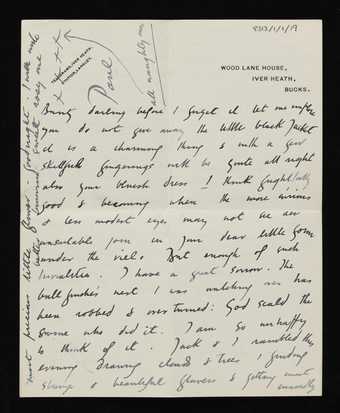 8313/1/1/19
TELEGRAMS, IVER HEATH.
STATION, LANGLEY.
X X X X
Paul
all naughty one
WOOD LANE HOUSE,
IVER HEATH,
BUCKS.
Bunty darling before I forget it let me implore
you do not give away the little black Jacket
it is a charming thing & with a few
skillful fingerings will be quite all right
also your bluish dress I think frightfully
good & becoming when the more
& less modest eyes may not see an
in your dear little gown
under the veil. But enough of such
trivialities. I have a great sorrow. The
bull finches nest I was watching has
been robbed & overturned: God scald the
swine who did it. I am so unhappy
to think of it. Jack & I rambled this
evening drawing clouds & trees & finding
strange & beautiful flowers & getting
most precious little flower. Goodnight I will write